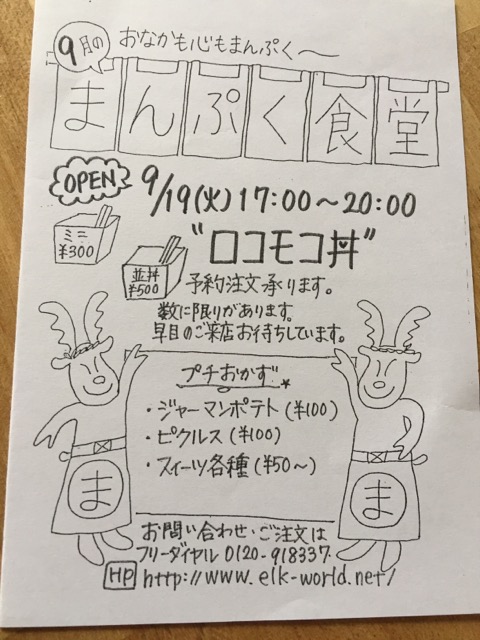 9月の おなかも心もまんぷく〜
まんぷく食堂
OPEN 9/19(火) 17:00〜20:00
ミニ ¥300
"ロコモコ丼"
並丼 ¥500
予約注文承ります。
数に限りがあります。
早目のご来店お待ちしています。
プチおかず
・ジャーマンポテト(¥100)
・ピクルス(¥100)
・スイーツ各種(¥50〜)
ま ま
お問い合わせ・ご注文は
フリーダイヤル 0120-918337
HP http://www.elk-world.net/